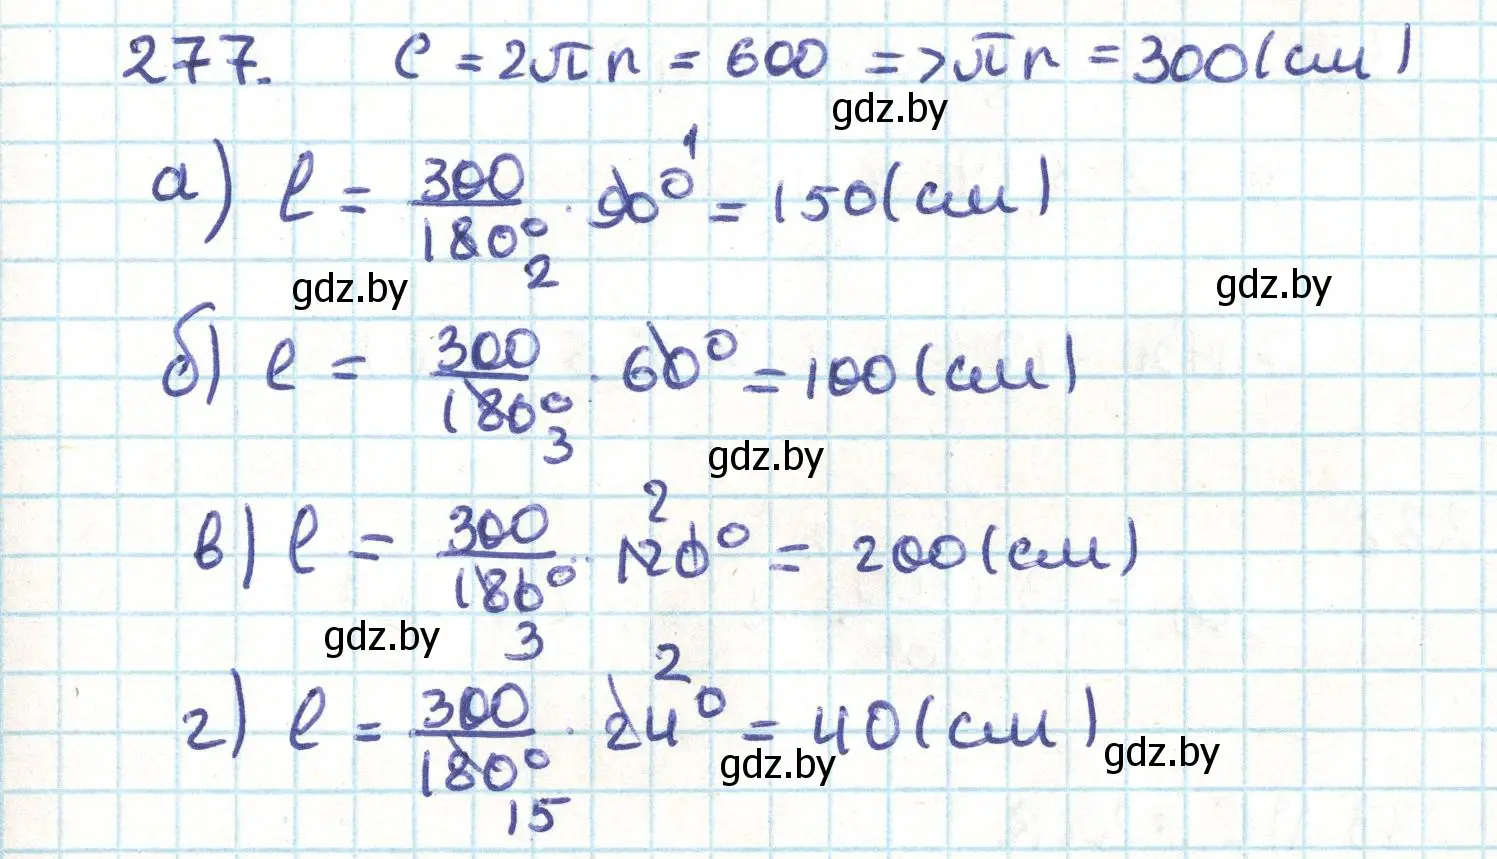 277. C = 2πr = 600 => πr = 300 (см)
gdz.by
а) l = 300/180° · 90° = 150 (см)
2 1
gdz.by gdz.by
б) l = 300/180° · 60° = 100 (см)
3
gdz.by
в) l = 300/180° · 120° = 200 (см)
3 2
gdz.by
г) l = 300/180° · 24° = 40 (см)
15 2
gdz.by gdz.by